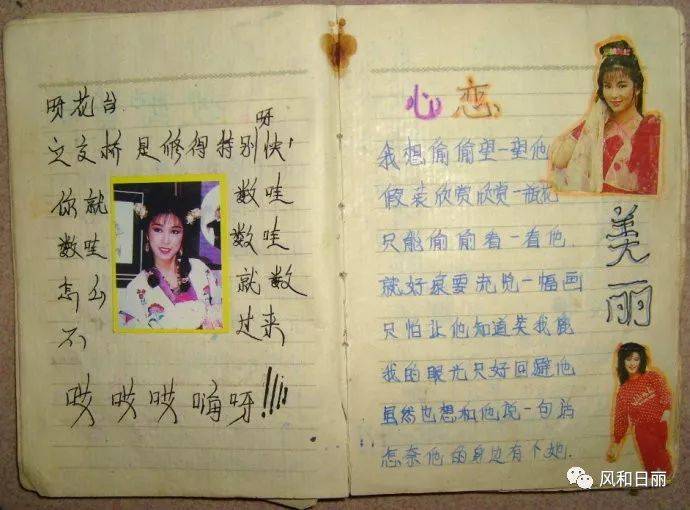 呀花台
呀
立交桥是修得特别快
你就 数哇
数哇 数哇
怎么 就数
不 过来
哎哎哎嗨呀!!!!
心恋
我想偷偷望一望他
假装欣赏欣赏一瓶花
只能偷偷看一看他
就好象要流览一幅画
只怕让他知道笑我傻
我的眼光只好回避他
虽然也想和他说一句话
怎奈他的身边有个她.
美丽
风和日丽